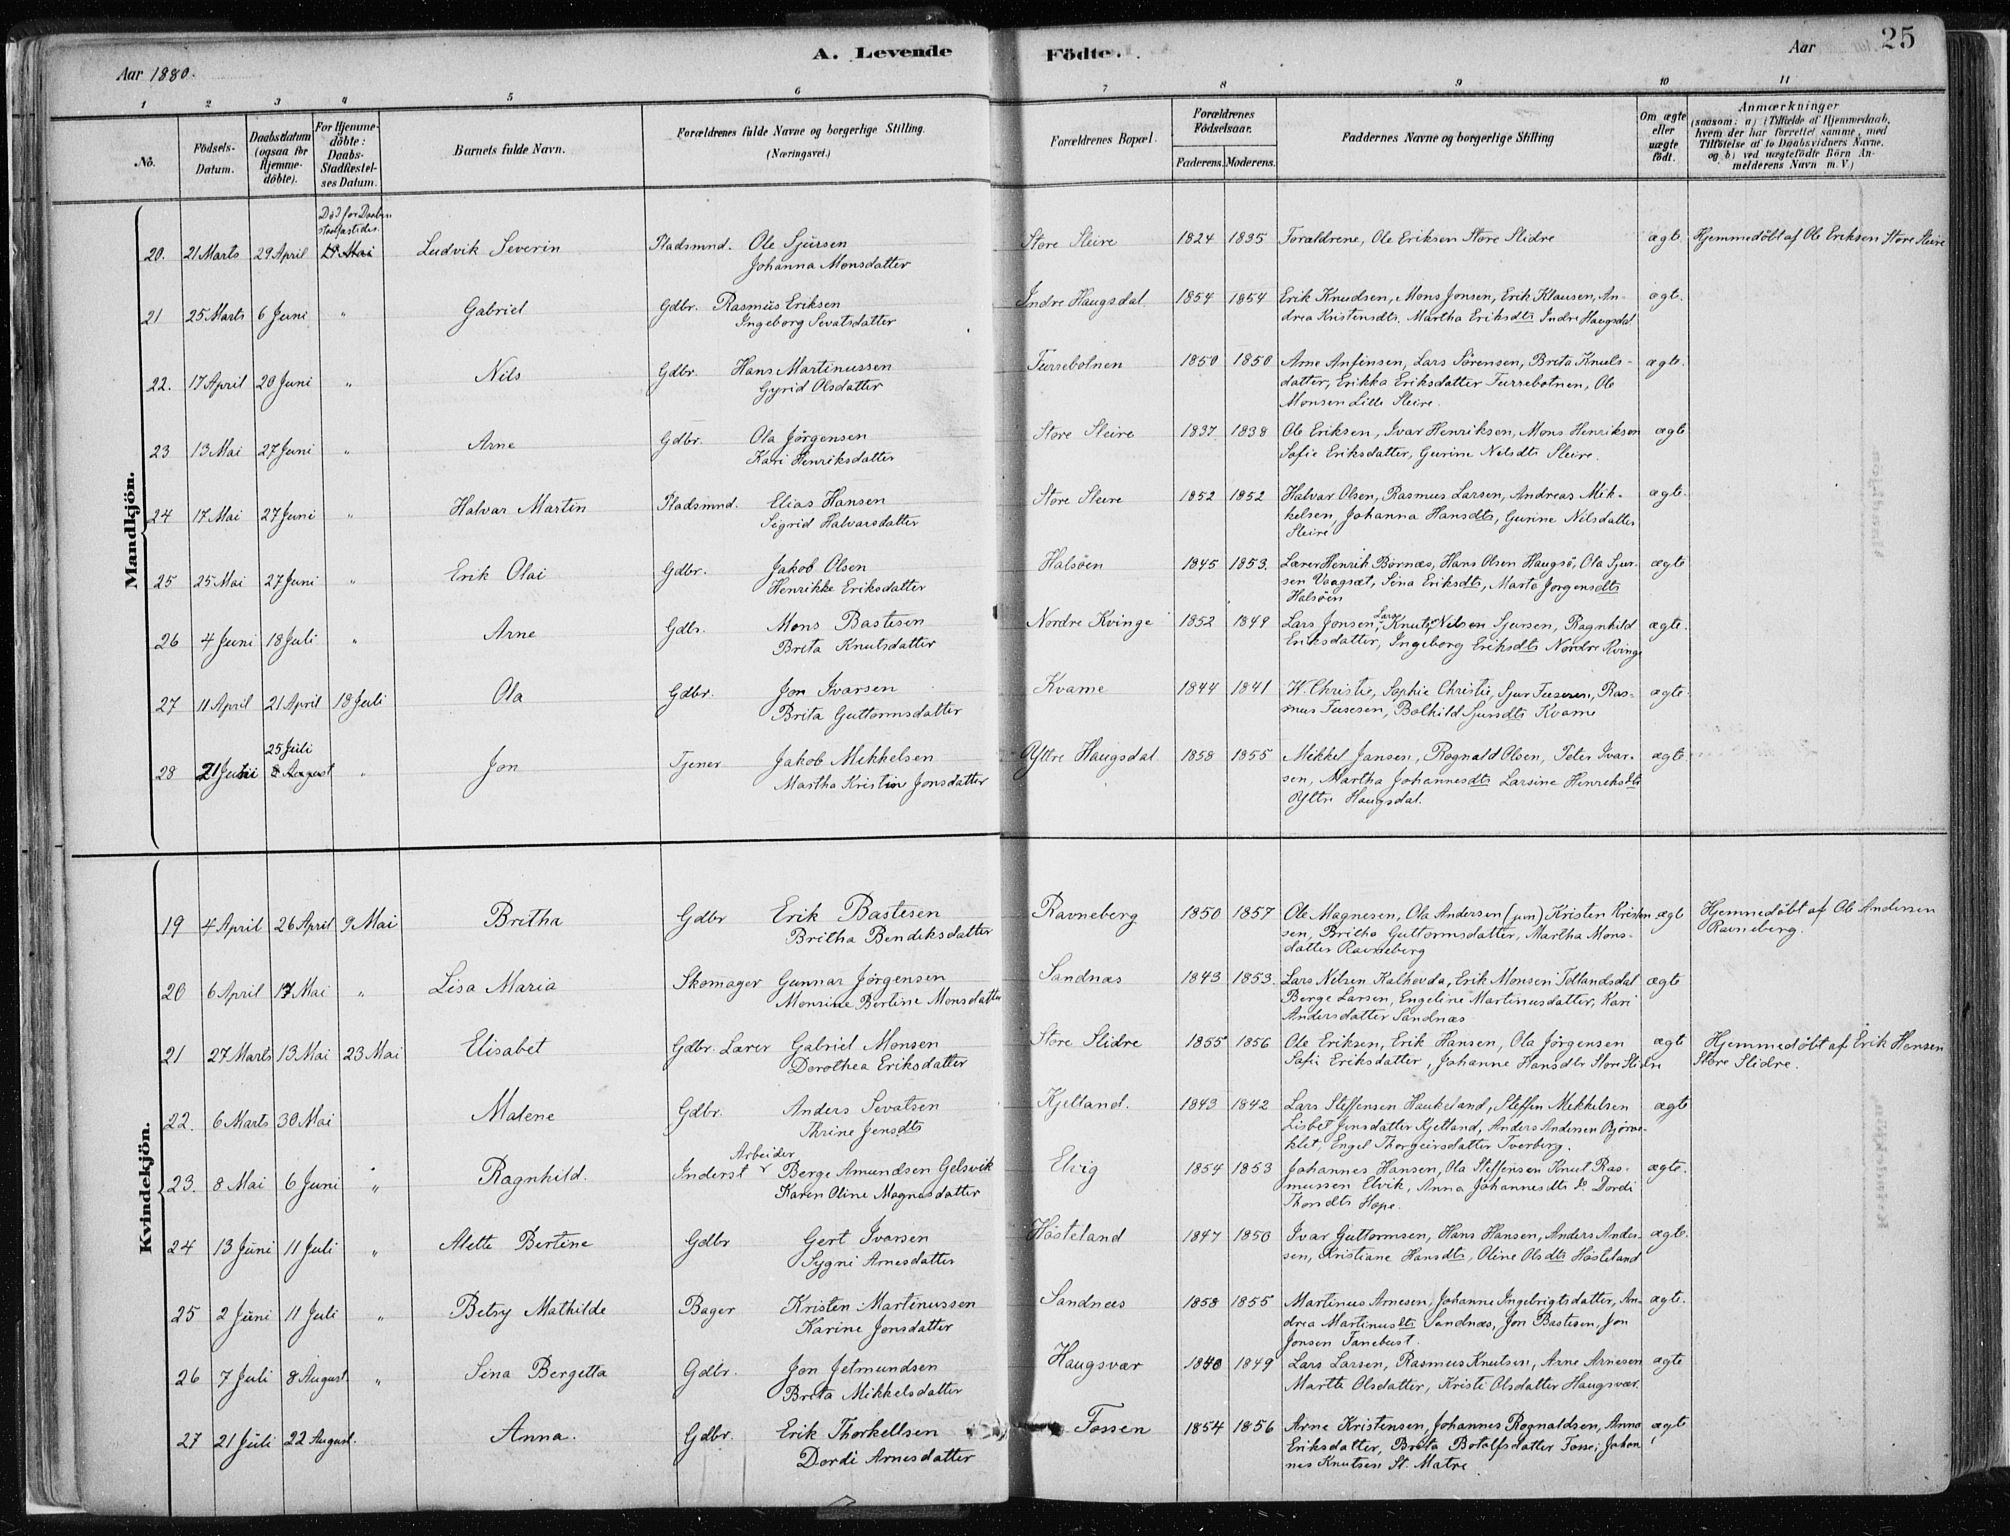 Aar 1880.
A. Levende
Födte.
Aar
25
1 2 3 4 5 6 7 8 9 10 11
No.
Födsels-Datum.
Daabsdatum (ogsaa for Hjemme-döbte).
For Hjemme-döbte: Daabs-Stadfæstel-ses Datum.
Barnets fulde Navn.
Forældrenes fulde Navne og borgerlige Stilling.
(Næringsvei.)
Forældrenes Bopæl.
Forældrenes Födselsaar.
Faderens. Moderens.
Faddernes Navne og borgerlige Stilling
Om ægte eller uægte födt.
Anmærkninger
(saasom: a) i Tilfælde af Hjemmedaab,
hvem der har forrettet samme, med
Tilföielse af to Daabsvidners Navne,
og b) ved uægtefödte Börn An-
melderens Navn m. V.)
Mandkjön.
Död for Daaben
stadfæstedes
20. 21 Marts 29 April 18 Mai Ludvik Severin Pladsmnd. Ole Sjursen Store Sleire 1824 1835 Forældrene, Ole Eriksen Store Slidre ægte Hjemmedöbt af Ole Eriksen Store Sleire
Johanna Monsdatter
21 25 Marts 6 Juni " Gabriel Gdbr. Rasmus Eriksen Indre Haugsdal 1854 1854 Erik Knudsen, Mons Jonsen, Erik Klausen, An- ægte.
Ingeborg Sevatsdatter drea Kristensdtr. Martha Eriksdtr Indre Haugsdal
22. 17 April 20 Juni " Nils Gdbr. Hans Martinussen Furrebotnen 1850 1850 Arne Anfinsen, Lars Sörensen, Brita Knuts- ægte.
Gyrid Olsdatter datter, Erikka Eriksdatter Furrebotnen, Ole
Monsen Lille Sleire.
23 13 Mai 27 Juni " Arne Gdbr. Ola Jörgensen Store Sleire 1837 1838 Ole Eriksen, Ivar Henriksen, Mons Henriksen ægte
Kari Henriksdatter Sofie Eriksdatter, Gurine Nilsdtr Sleire.
24 17 Mai 27 Juni " Halvar Martin Pladsmnd. Elias Hansen Store Sleire 1852 1852 Halvar Olsen, Rasmus Larsen, Andreas Mik- ægte.
Sigrid Halvarsdatter kelsen, Johanna Hansdtr, Gurine Nilsdatter
Sleire
25 25 Mai 27 Juni " Erik Olai Gdbr. Jakob Olsen Halsöen 1845 1853. Lærer Henrik Börnæs, Hans Olsen Haugsö, Ola Sjur- ægte
Henrikke Eriksdatter sen Vaagsæt, Sena Eriksdtr, Marta Jorgensdtr
Halsöen
26 4 Juni 18 Juli " Arne Gdbr. Mons Bastesen Nordre Kvinge 1852 1849 Lars Jonsen, Lars Knuts, Nils Sjursen, Ragnhild ægte.
Brita Knutsdatter Eriksdatter, Ingeborg Eriksdtr Nordre Kvinge
27 11 April 21 April 18 Juli Ola Gdbr. Jon Ivarsen Kvame 1844 1841 W. Christie, Sophie Christie, Sjur Tusesen, Ras- ægte.
Brita Guttormsdatter mus Tusesen, Bolhild Sjursdtr Kvame
25 Juli
28 21 Juni 8 August " Jon Tjener Jakob Mikkelsen Yttre Haugsdal 1858 1855 Mikkel Jansen, Rognald Olsen, Peter Ivar- ægte.
Martha Kristin Jonsdatter sen, Martha Johannesdtr Larsine Henriksdtr
Yttre Haugsdal.
Kvindekjön.
19 4 April 26 April 9 Mai Britha Gdbr Erik Bastesen Ravneberg 1850 1857 Ole Magnesen, Ola Andersen (jun) Kristen Kristen ægte Hjemmedöbt af Ole Andersen
Britha Bendiksdatter sen, Britha Guttormsdatter, Martha Mons- Ravneberg.
datter Ravneberg
20 6 April 17 Mai " Lisa Maria Skomager Gunnar Jörgensen Sandnæs 1843 1853. Lars Nilsen Kalhovda, Erik Monsen Totlandsdal ægte
Monsine Bertine Monsdatter Berge Larsen, Engeline Martinusdatter, Kari
Andersdatter Sandnæs
21 27 Marts 13 Mai 23 Mai Elisabet Gdbr. Lærer Gabriel Monsen Store Slidre 1855 1856 Ole Eriksen, Erik Hansen, Ola Jörgensen ægte Hjemmedöbt af Erik Hansen
Dorothea Eriksdatter Sofie Eriksdatter, Johanne Hansdtr Store Slidre Store Slidre.
22. 6 Marts 30 Mai Malene Gdbr. Anders Sevatsen Kjelland. 1843 1842 Lars Steffensen Haukeland, Steffen Mikkelsen ægte
Thrine Jensdtr Lisbet Jensdatter Kjetland, Anders Andersen Bjørne-
klet, Engel Thorgeirsdatter Tverberg.
Arbeider
23. 8 Mai 6 Juni " Ragnhild. Inderst Berge Amundsen Gelsvik Elvig 1854 1853 Johannes Hansen, Ola Steffensen Knut Ras- ægte.
Karen Oline Magnesdatter mussen Elvik, Anna Johannesdtr do. Dordi
Thordtr Hope.
24 13 Juni 11 Juli " Alette Bertine Gdbr Gert Ivarsen Hösteland 1847 1850 Ivar Guttormsen, Hans Hansen, Anders Ander- ægte.
Sygni Arnesdatter sen, Kristiane Hansdtr, Oline Olsdtr Hösteland
25 2 Juni 11 Juli " Betsy Mathilde Bager Kristen Martinussen Sandnæs 1858 1855 Martinus Arnesen, Johanne Ingebrigtsdatter, An- ægte.
Karine Jonsdatter drea Martinusdtr Sandnæs, Jon Bastesen, Jon
Jonsen Tanebust.
26 7 Juli 8 August " Sina Bergetta Gdbr. Jon Jetmundsen Haugsvær 1840 1849 Lars Larsen, Rasmus Knutsen, Arne Arnesen ægte
Brita Mikkelsdatter Marthe Olsdatter, Kristi Olsdatter Haugsvær.
27 21 Juli 22 August. Anna. Gdbr. Erik Thorkellsen Fossen 1854 1856 Arne Kristensen, Johannes Rognaldsen, Anna ægte
Dordi Arnesdatter Eriksdatter, Brita Botolfsdatter Fosse, Johan
nes Knutsen St. Matre